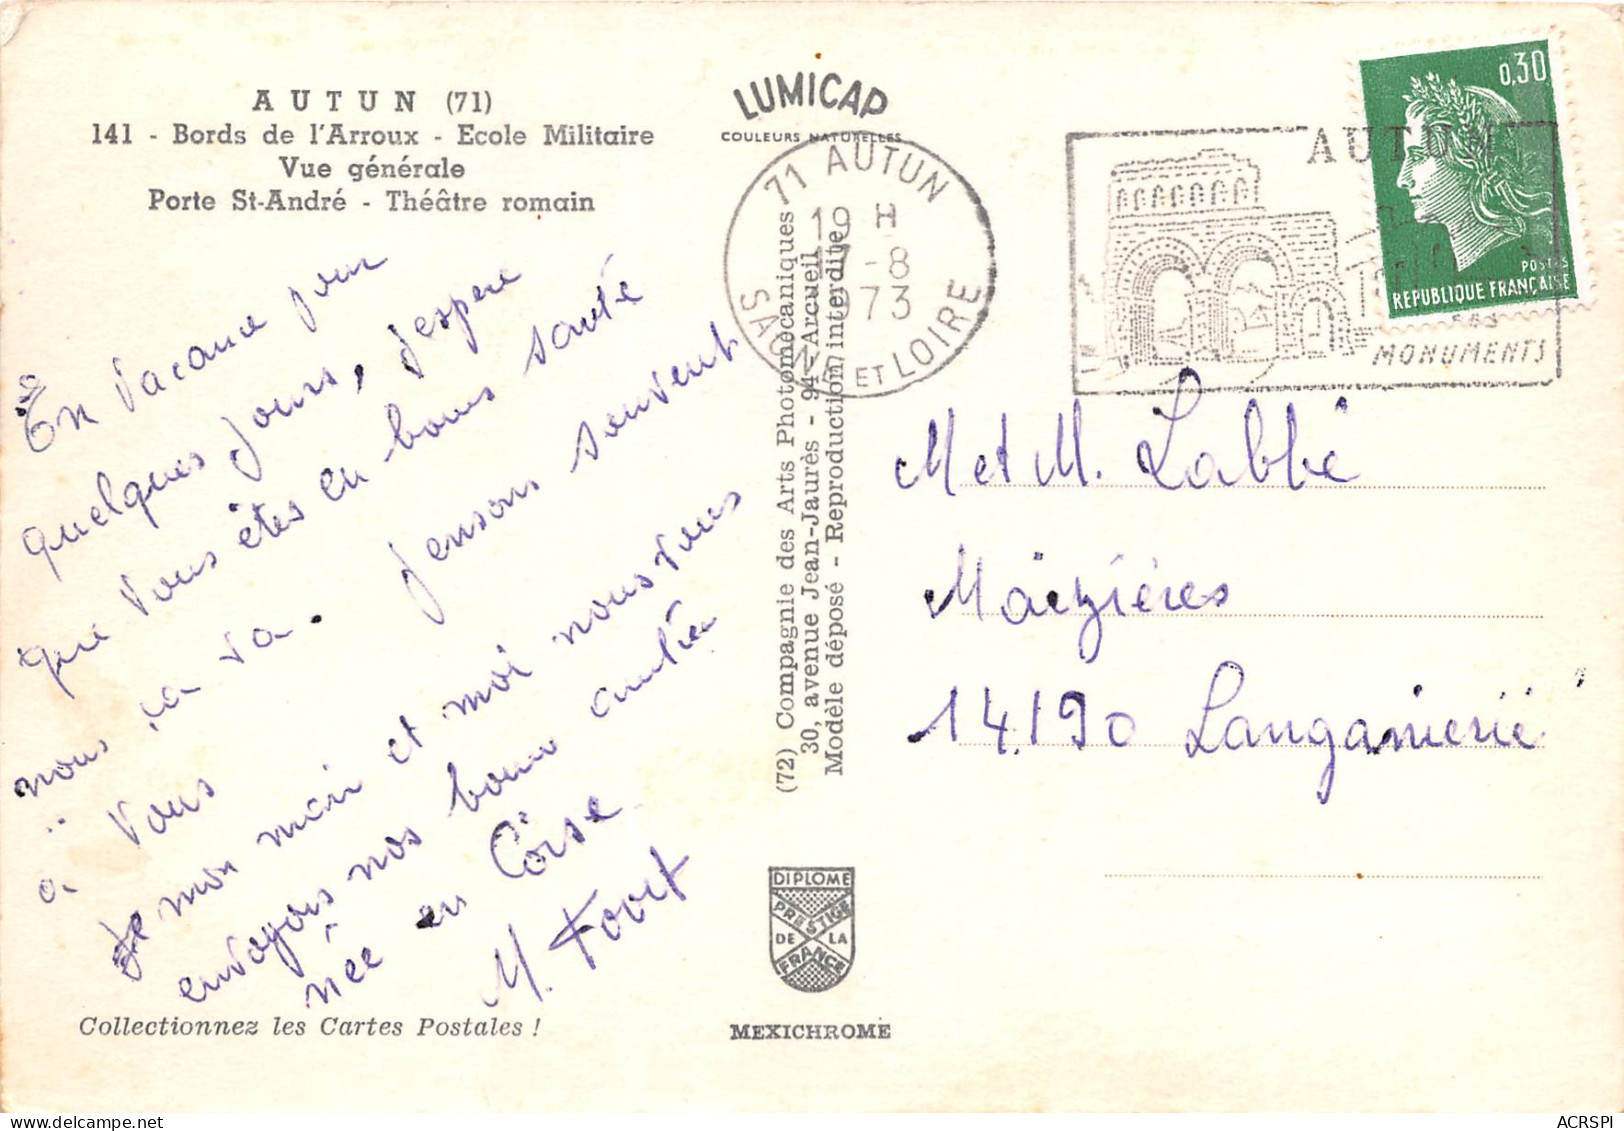 AUTUN (71)
141 - Bords de l'Arroux - Ecole Militaire
Vue générale
Porte St-André - Théâtre romain
En vacance pour
quelques jours, j'espere
que vous êtes en bonne santé
nous ça va. pensons souvent
à vous
mon mari et moi nous vous
envoyons nos bonne amitiée
née en Corse
M.
Collectionnez les Cartes Postales !
LUMICAP
COULEURS NATURELLES
71 AUTUN
19 H
17-8
1973
SAONE ET LOIRE
(72) Compagnie des Arts Photomécaniques
30, avenue Jean-Jaurès - 94 - Arcueil
Modèle déposé - Reproduction interdite.
DIPLOME
PRESTIGE
DE LA
FRANCE
MEXICHROME
AUTUN
MONUMENTS
0,30
POSTES
REPUBLIQUE FRANÇAISE
M et M. Labbé
Maizières
14.190 Langannerie
ACRSPI